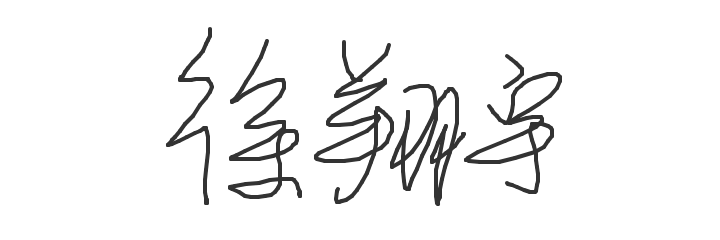 徐翔宇